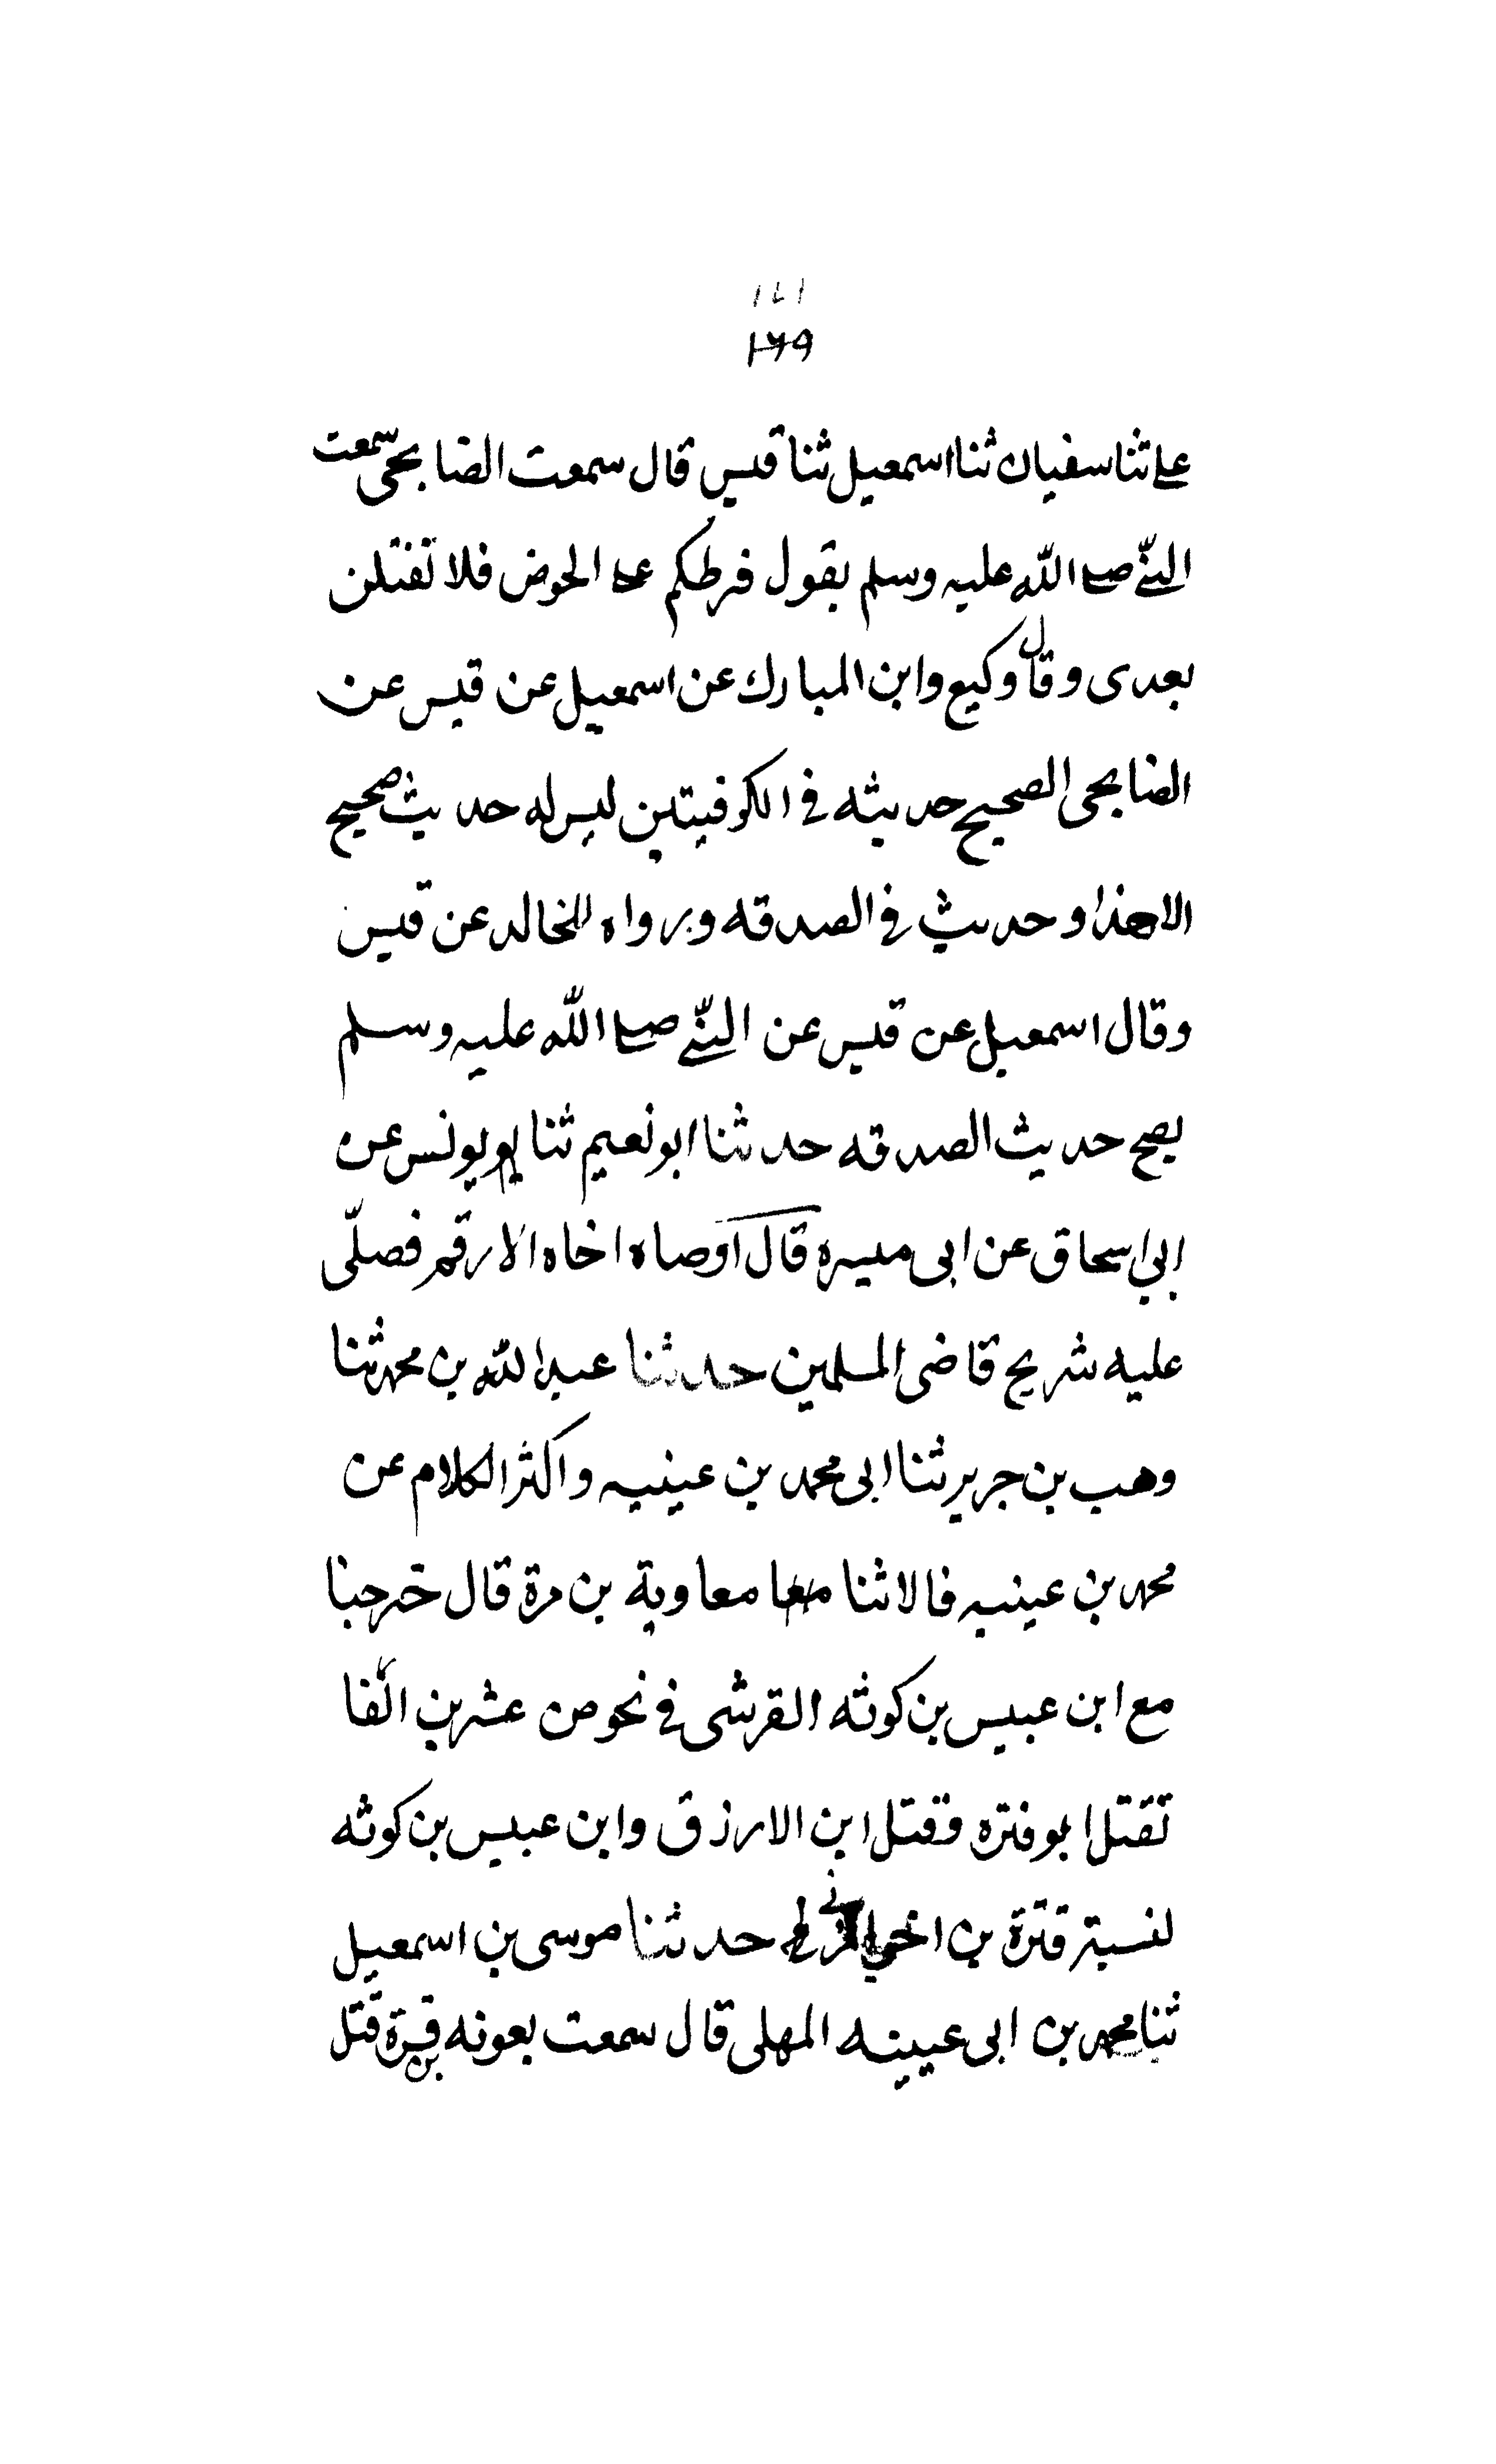 ۱۷۱
۱۶۹
علی ثنا سفیان ثنا اسمعیل ثنا قیس قال سمعت الصنابحی سمعت
النبّی صلی اللّه علیه وسلم یقول فرطکم علی الحوض فلا تقتلن
بعدی وقال وکیع وابن المبارك عن اسمعیل عن قیس عن
الصنابحی الصحیح حدیثه فی الکوفیتین لیس له حدیث صحیح
الا هذا وحدیث فی الصدقه ورواه للخالد عن قیس
وقال اسمعیل عن قیس عن النبّی صلی اللّه علیه وسلم
یصح حدیث الصدقه حدثنا ابو نعیم ثنا یونس عن
ابی اسحاق عن ابی میسره قال اوصاه اخاه الارقم فصلّی
علیه شریح قاضی المسلمین حدثنا عبد اللّه بن محمد ثنا
وهب بن جریر ثنا ابی محمد بن عینیه واکثر الکلام عن
محمد بن عینیه قالا ثنا معاویة بن مرة قال خرجنا
مع ابن عبیس بن کوثه القرشی فی نحو من عشرین الفا
تقتل ابو فتره وقتل ابن الارزق وابن عبیس بن کوثه
لنسبتر قترة بن اخی حدثنا موسی بن اسمعیل
ثنا محمد بن ابی عیینه المهلی قال سمعت بعونه بن قرة قتل